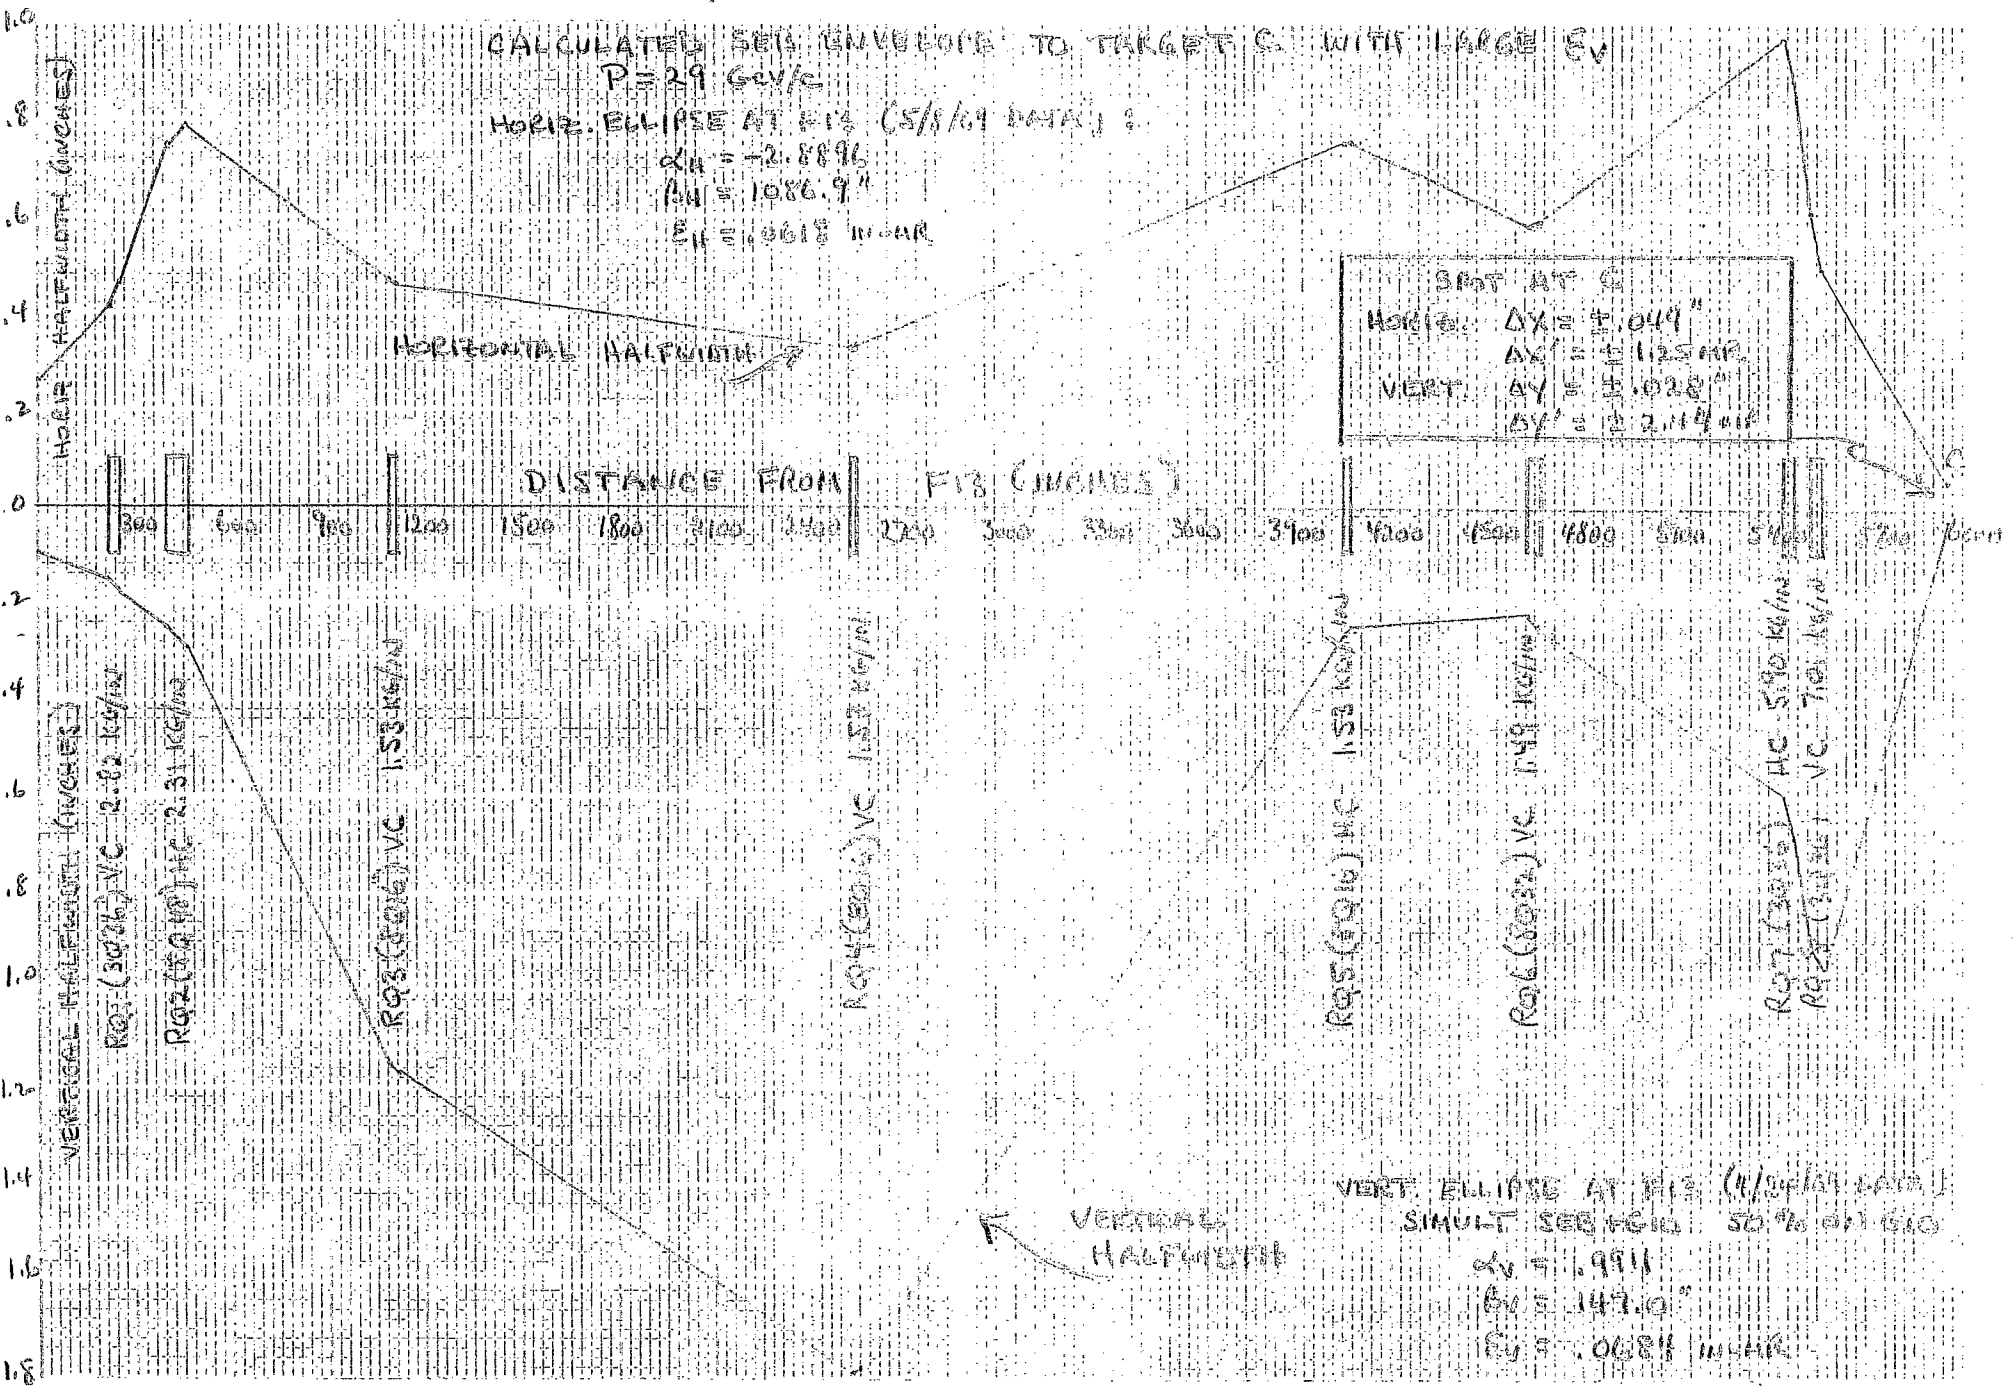 CALCULATED SEB ENVELOPE TO TARGET C WITH LARGE εv
P = 29 GeV/c
HORIZ. ELLIPSE AT F13 (5/8/69 DATA) :
αH = -2.8896
βH = 1086.9"
εH = .0618 IN-MR
HORIZ HALFWIDTH (INCHES)
1.0
.8
.6
.4
.2
0
.2
.4
.6
.8
1.0
1.2
1.4
1.6
1.8
HORIZONTAL HALFWIDTH
SPOT AT C
HORIZ. ΔX = ±.049"
ΔX' = ± 1.25 MR
VERT. ΔY = ±.028"
ΔY' = ± 2.44 MR
C
DISTANCE FROM F13 (INCHES)
300 600 900 1200 1500 1800 2100 2400 2700 3000 3300 3600 3900 4200 4500 4800 5100 5400 5700 6000
VERTICAL HALFWIDTH (INCHES)
RQ1 (3Q36) VC 2.82 KG/IN
RQ2 (5Q48) HC 2.31 KG/IN
RQ3 (8Q16) VC 1.53 KG/IN
RQ4 (8Q16) VC 1.53 KG/IN
RQ5 (8Q16) HC 1.53 KG/IN
RQ6 (8Q32) VC 1.49 KG/IN
RQ7 (3Q36) HC 5.90 KG/IN
RQ8 (3Q36) VC 7.01 KG/IN
VERTICAL
HALFWIDTH
VERT. ELLIPSE AT F13 (4/24/69 DATA)
SIMULT SEB + G10 50% ON G10
αv = .9911
βv = 147.0"
εv = .0684 IN-MR